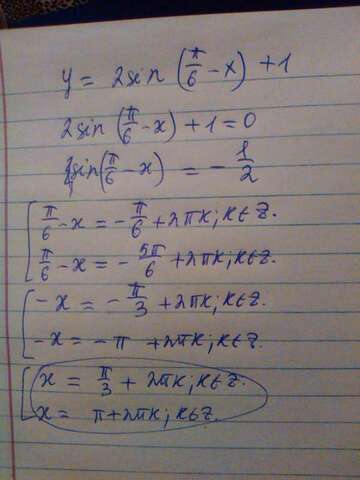 y = 2sin (π/6 - x) + 1
2sin (π/6 - x) + 1 = 0
sin(π/6 - x) = - 1/2
π/6 - x = - π/6 + 2πk; k∈Z.
π/6 - x = - 5π/6 + 2πk; k∈Z.
- x = - π/3 + 2πk; k∈Z.
- x = - π + 2πk; k∈Z.
x = π/3 + 2πk; k∈Z.
x = π + 2πk; k∈Z.